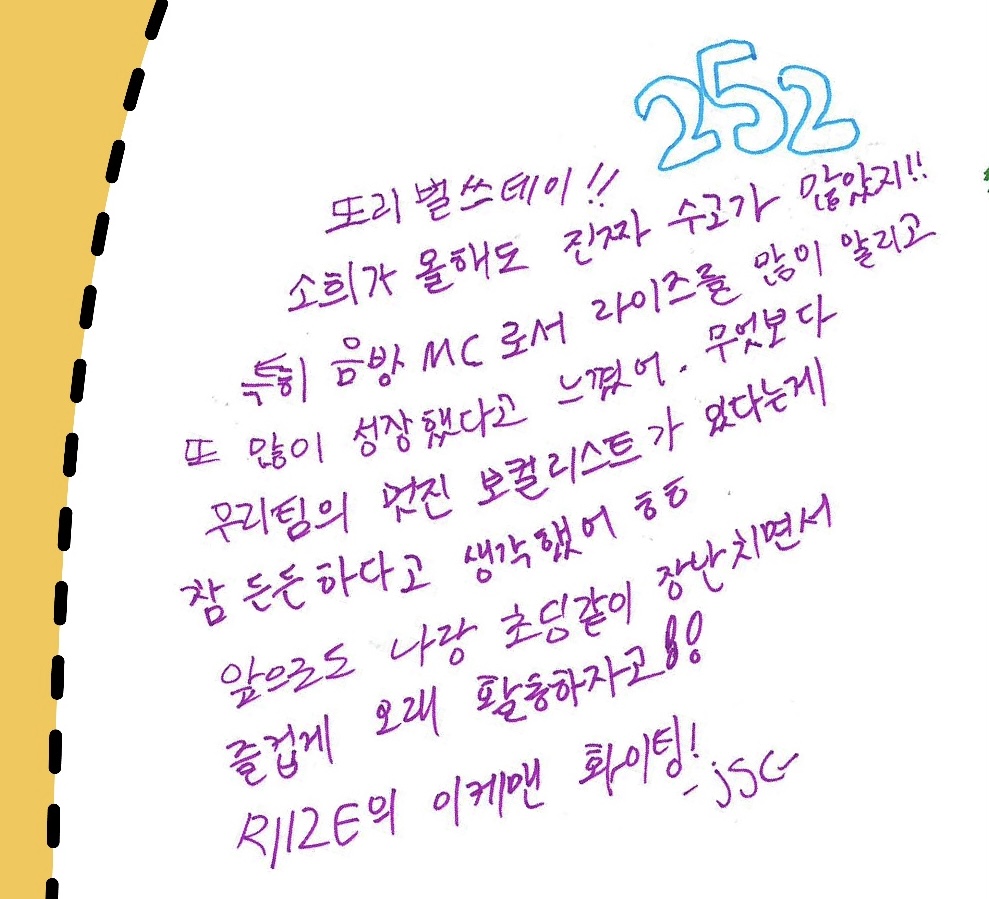 252
또리 벌쓰데이!!
소희가 올해도 진짜 수고가 많았지!!
특히 음방 MC로서 라이즈를 많이 알리고
또 많이 성장했다고 느꼈어. 무엇보다
우리팀의 멋진 보컬리스트가 있다는게
참 든든하다고 생각했어 ㅎㅎ
앞으로도 나랑 초딩같이 장난치면서
즐겁게 오래 활동하자고!!
RIIZE의 이케맨 화이팅! -jSC-